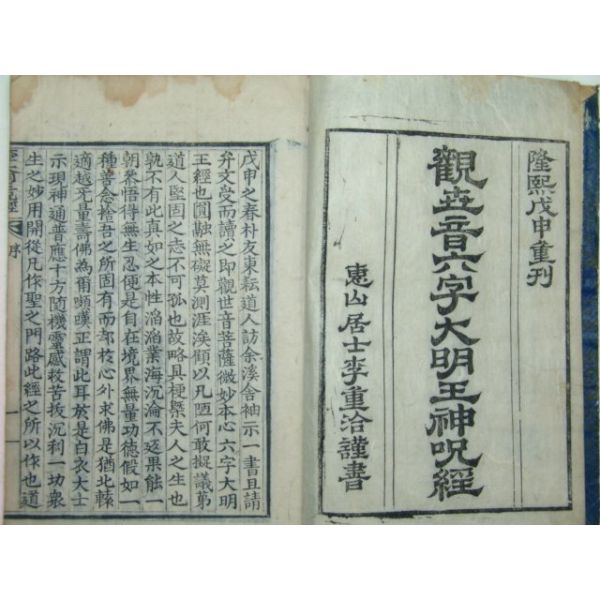 隆熙戊申重刊
觀世音六字大明王神呪經
惠山居士李重洽謹書
戊申之春朴友東耘道人訪余溪舍袖示一書且請
弁文受而讀之卽觀世音菩薩微妙本心六字大明
王經也圓融無礙莫測涯涘顧以凡陋何敢擬議第
道人堅固之志不可孤也故略具梗槩夫人之生也
孰不有此眞如之本性滔滔業海沉淪不返果能一
朝發悟得無生忍便是自在境界無量功德假如一
種善念捨吾之所固有而却枝心外求佛是猶北轅
適越无量壽佛爲爾嚬嘆正謂此耳於是白衣大士
示現神通普應十方隨機靈感救苦拔沉利一切衆
生之妙用開從凡作聖之門路此經之所以作也道
序